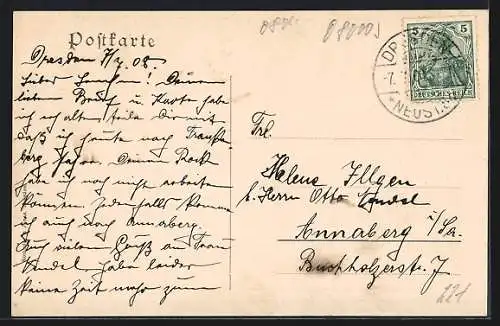 Postkarte
Dresden 7/2 08.
Lieber! Deinen
lieben Brief u. Karte habe
ich erhalten, teile Dir mit
daß ich heute nach
berg fahre. Deinen Rock
habe ich noch nicht arbeiten
können. Jedenfalls komme
ich auch nach Annaberg.
Auch vielen Gruß an Frau
habe leider
keine Zeit mehr zum
Frl.
Helene Illgen
b. Herrn Otto
Annaberg i/Sa.
Buchholzerstr. 7
5 5
DEUTSCHES REICH
DRESDEN
7.
NEUST.
221